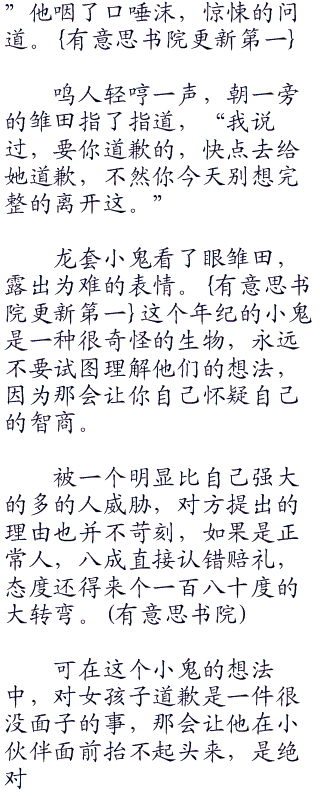 ”他咽了口唾沫，惊悚的问
道。{有意思书院更新第一}
鸣人轻哼一声，朝一旁
的雏田指了指道，“我说
过，要你道歉的，快点去给
她道歉，不然你今天别想完
整的离开这。”
龙套小鬼看了眼雏田，
露出为难的表情。{有意思书
院更新第一}这个年纪的小鬼
是一种很奇怪的生物，永远
不要试图理解他们的想法，
因为那会让你自己怀疑自己
的智商。
被一个明显比自己强大
的多的人威胁，对方提出的
理由也并不苛刻，如果是正
常人，八成直接认错赔礼，
态度还得来个一百八十度的
大转弯。(有意思书院)
可在这个小鬼的想法
中，对女孩子道歉是一件很
没面子的事，那会让他在小
伙伴面前抬不起头来，是绝
对